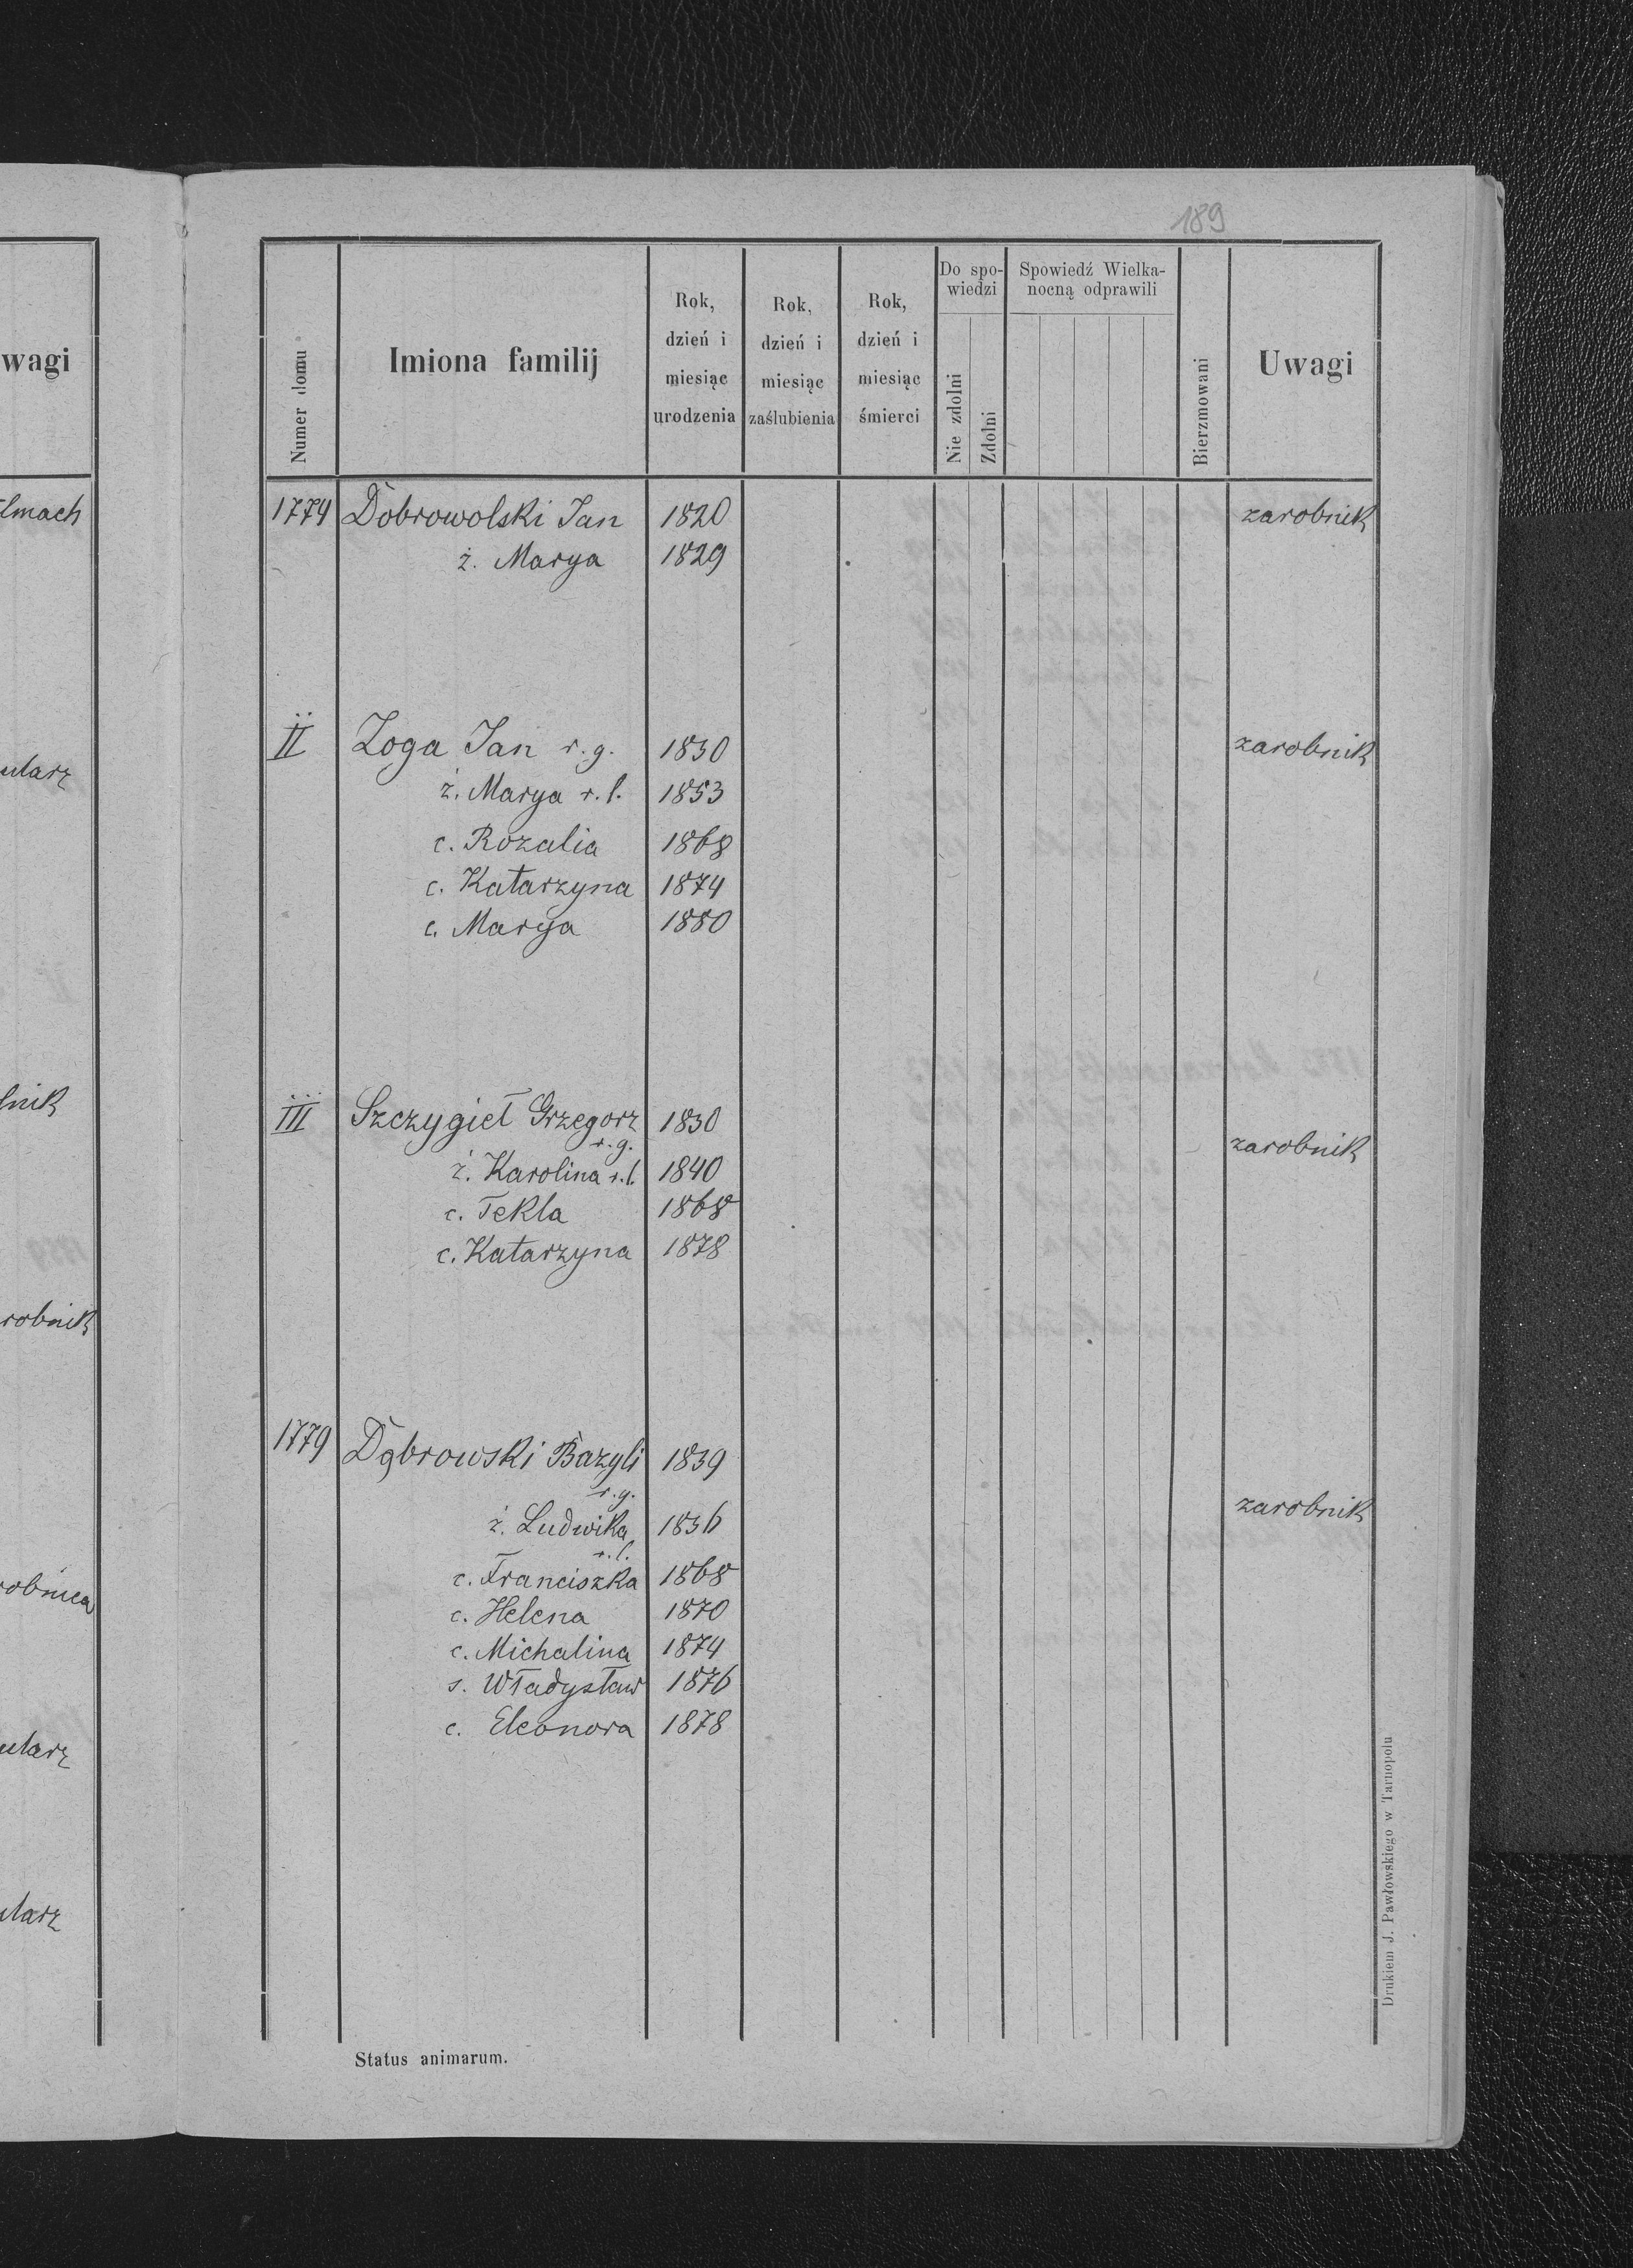 189
wagi
Numer domu
Imiona familij
Rok, dzień i miesiąc urodzenia
Rok, dzień i miesiąc zaślubienia
Rok, dzień i miesiąc śmierci
Do spo-
wiedzi
Nie zdolni
Zdolni
Spowiedź Wielka-
nocną odprawili
Bierzmowani
Uwagi
1774 Dobrowolski Jan 1820 zarobnik
ż. Marya 1829
II Zoga Jan r. g. 1830 zarobnik
ż. Marya r. l. 1853
c. Rozalia 1868
c. Katarzyna 1874
c. Marya 1880
III Szczygieł Grzegorz 1830
r. g.
zarobnik
ż. Karolina r. l. 1840
c. Tekla 1868
c. Katarzyna 1878
robnik
1779 Dąbrowski Bazyli 1839
r. g.
zarobnik
ż. Ludwika 1836
r. l.
c. Franciszka 1868
c. Helena 1870
c. Michalina 1874
s. Władysław 1876
c. Eleonora 1878
Status animarum.
Drukiem J. Pawłowskiego w Tarnopolu